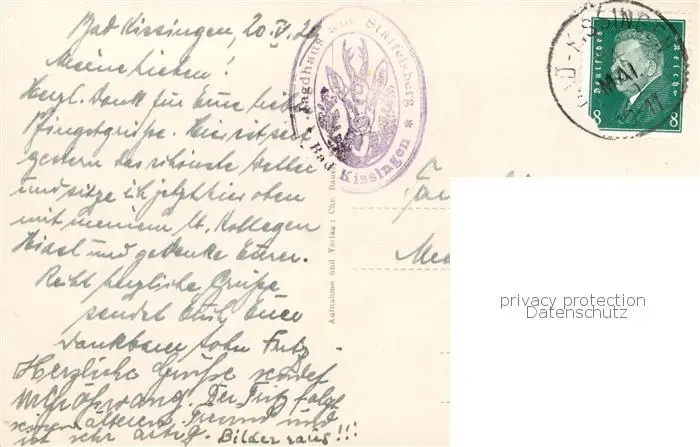 Bad Kissingen, 20. V. 29
Meine Lieben!
Herzl. Dank für Eure lieben
Pfingstgrüße. Hier ist seit
gestern das schönste Wetter
und sitze ich jetzt hier oben
mit meinem lb. Kollegen
und gedenke Eurer.
Recht herzliche Grüße
sendet Euch Euer
dankbarer Sohn Fritz.
Herzliche Grüße sendet
Der Fritz folgt
seinem älteren Freund und
ist sehr artig. Bilder raus!!!
Jagdhaus am Staffelsberg
* Bad Kissingen *
Aufnahme und Verlag: Chr. Raus
BAD-KISSINGEN
MAI
Deutsches Reich
8 8
privacy protection
Datenschutz